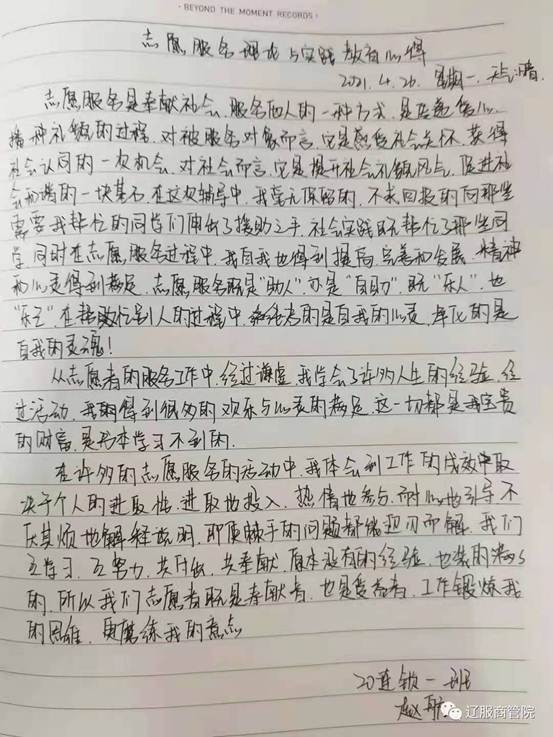 · BEYOND THE MOMENT RECORDS ·
志愿服务理论与实践教育心得
2021.4.26. 星期一. 天气:晴
志愿服务是奉献社会、服务他人的一种方式, 是传递爱心、
播种礼貌的过程. 对被服务对象而言, 它是感受社会关怀, 获得
社会认同的一次机会, 对社会而言, 它是提升社会礼貌风气, 促进社
会和谐的一块基石. 在这次辅导中, 我毫无保留的, 不求回报的向那些
需要我帮忙的同学们伸出了援助之手. 社会实践既帮忙了那些同
学, 同时在志愿服务过程中, 我自我也得到提高, 完善和发展. 精神
和心灵得到满足. 志愿服务既是“助人”, 亦是“自助”, 既“乐人”, 也
“乐己”. 在帮忙别人的过程中, 的是自我的心灵, 净化的是
自我的灵魂!
从志愿者的服务工作中, 经过 我学会了许多人生的经验, 经
过活动, 我们得到很多的欢乐与心灵的满足. 这一切都是我宝贵
的财富, 是书本学习不到的.
在许多的志愿服务的活动中, 我体会到工作的成效取
决于个人的进取性, 进取地投入, 热情地参与, 耐心地引导, 不
厌其烦地解释说明, 即使棘手的问题都能迎刃而解. 我们
互学习, 互努力, 共付出, 共奉献. 原本没有的经验, 也
的, 所以我们志愿者既是奉献者, 也是受益者, 工作锻炼我
的思维, 更磨练我的意志
20连锁一班
赵航
辽服商管院